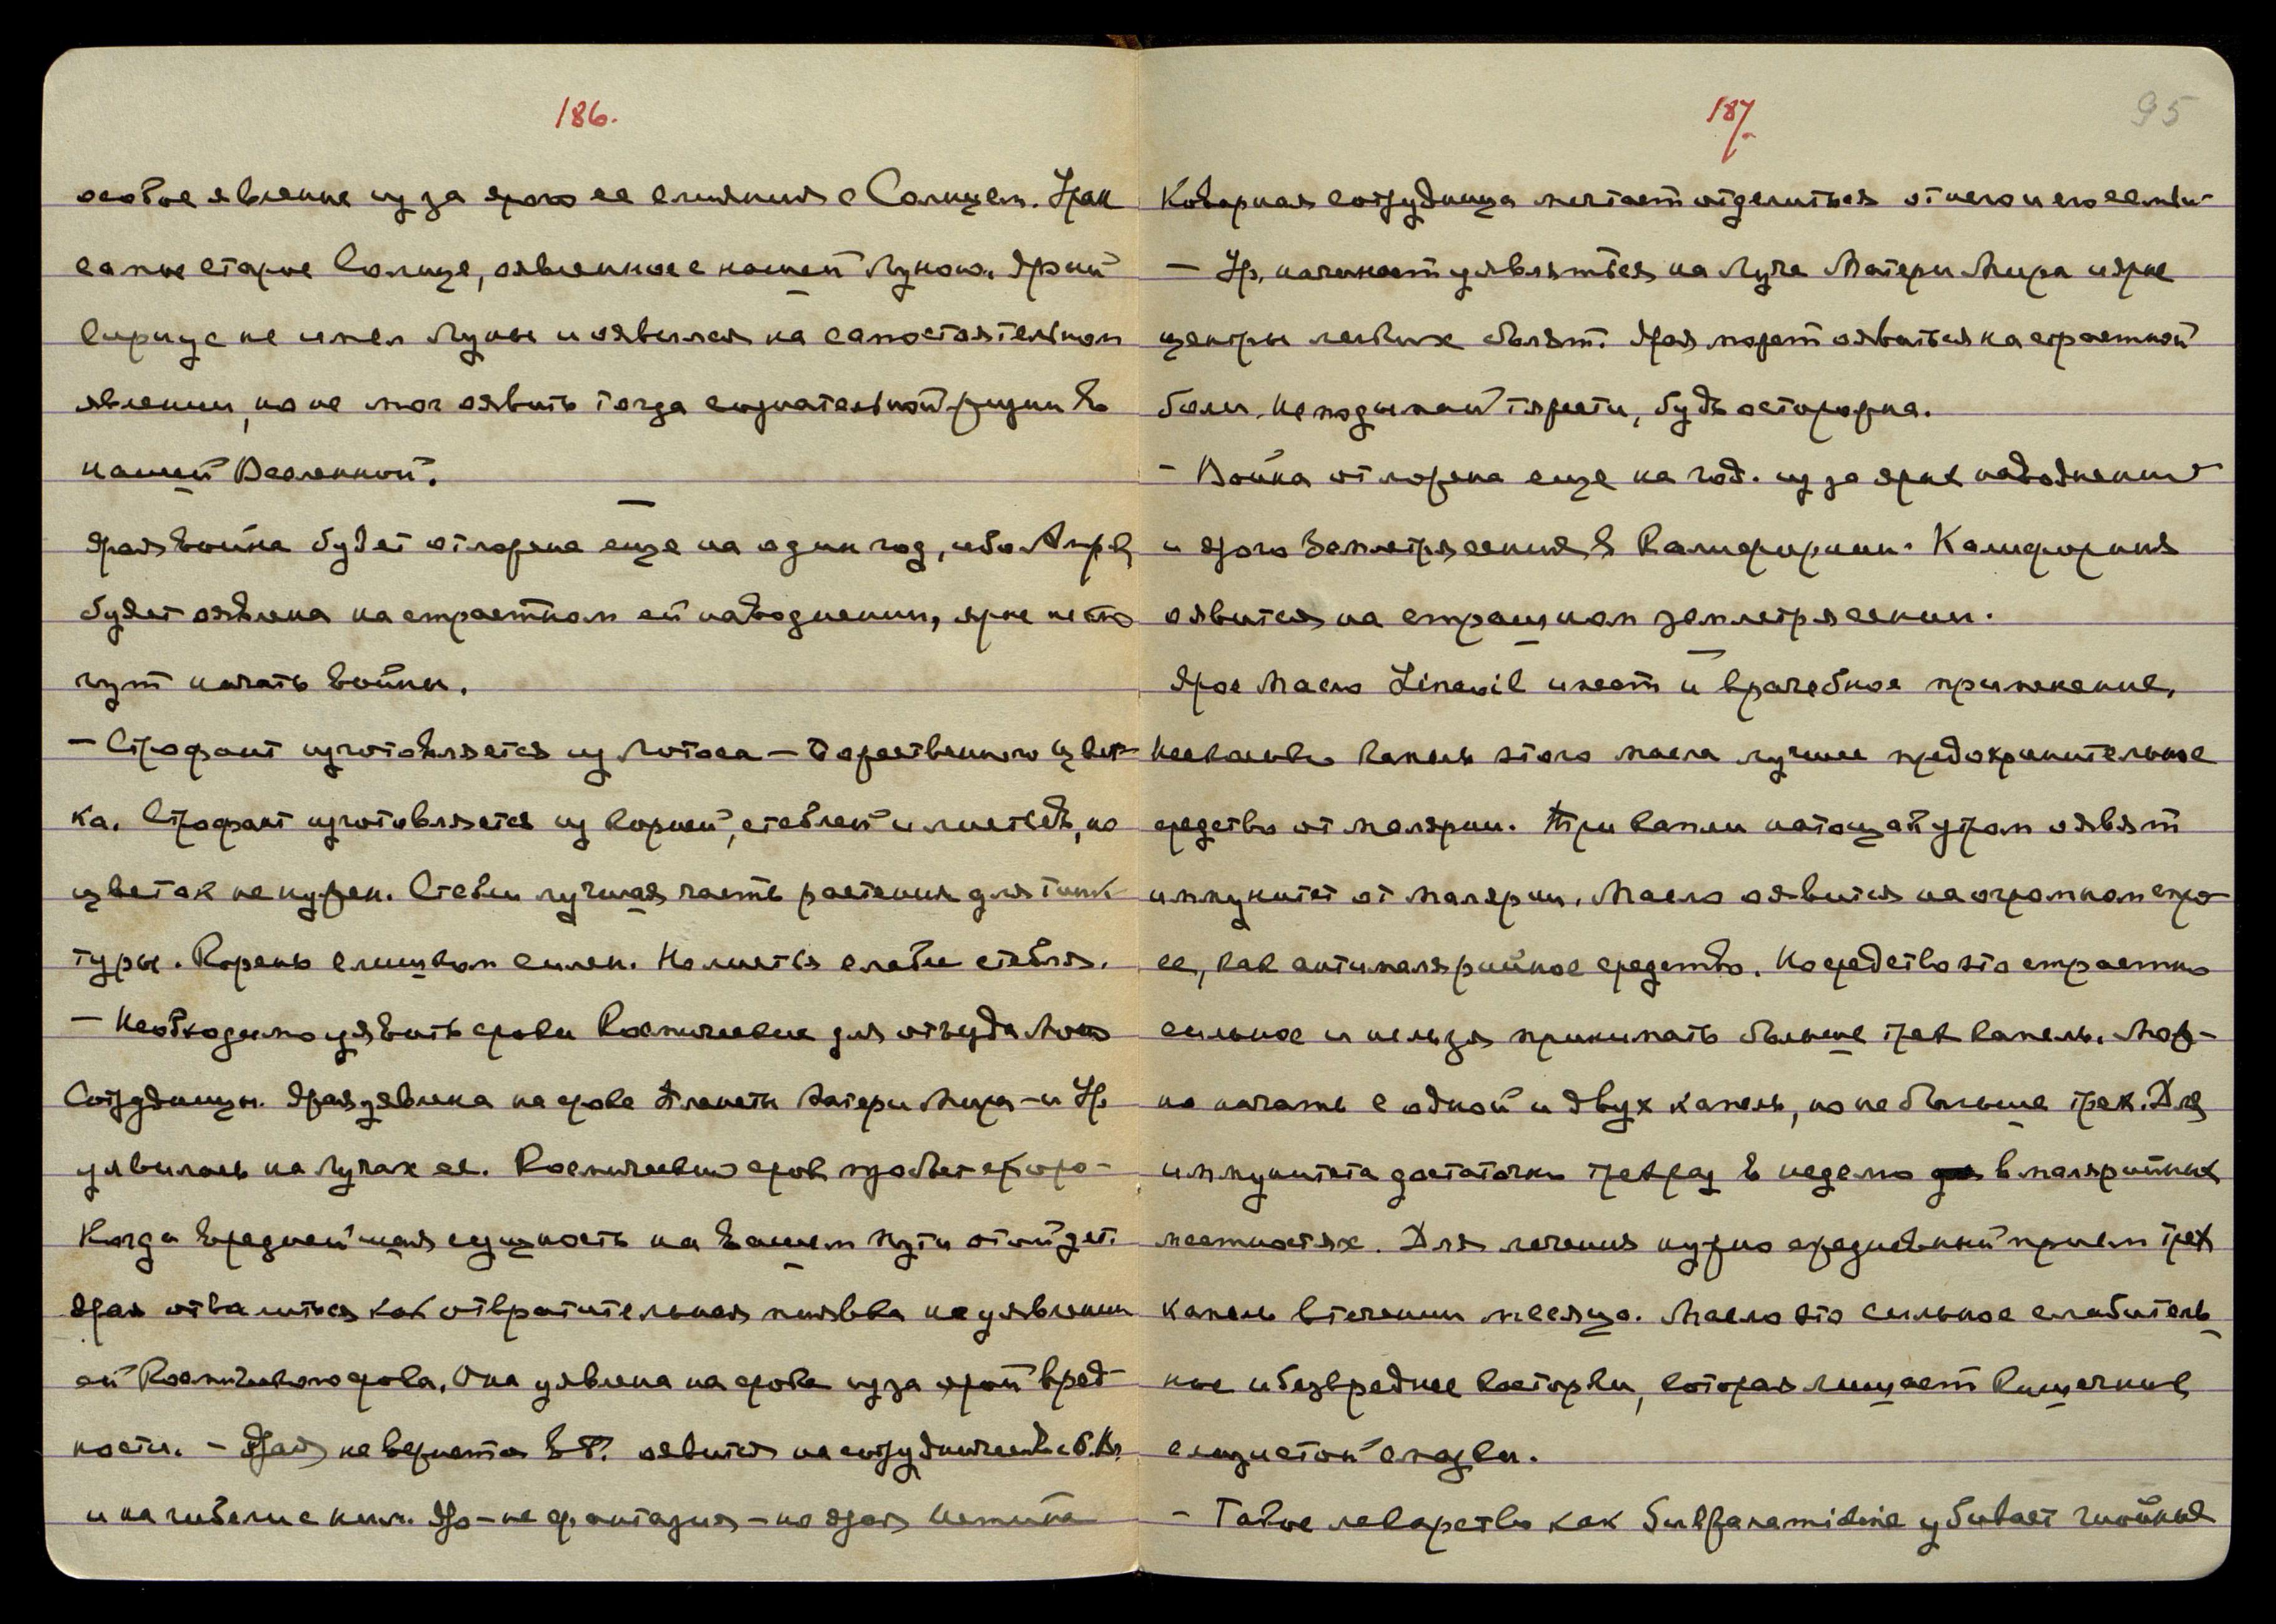 186.
особое явление из за ярого ее слияния с Солнцем. Уран
самое старое Солнце, оявленное с нашей Луною. Ярый
Сириус не имел Луны и оявился на самостоятельном
явлении, но не мог оявить тогда сознательной жизни в
нашей Вселенной.
Ярая война будет отложена еще на один год, ибо Амер.
будет оявлена на страстном ей наводнении, ярые не смо
гут начать войны.
— Строфант изготовляется из Лотоса — Божественного цвет-
ка. Строфант изготовляется из корней, стеблей и листьев, но
цветок не нужен. Стебли лучшая часть растения для тинк
туры. Корень слишком силен. Но листья слабее стебля.
— Необходимо уявить сроки Космические для отъезда Мою
Сотрудницы. Ярая уявлена на сроке Планеты Матери Мира — и Ур.
уявилась на Лучах ее. Космический срок пробьет скоро —
Когда вреднейшая сущность на вашем пути отойдет.
Ярая отвалится как отвратительная пиявка на уявлении
ей Космического срока. Она уявлена на сроке из за ярой вред-
ности. — Ярая не вернется в Р. оявится на сотрудничестве с
и на гибели с ним. Это — не фантазия — но ярая истина
187.
95
Коварная сотрудница мечтает отделиться от него и его семьи
— Ур. начинает уявляться на Луче Матери Мира и ярые
центры легких болят. Ярая может оявиться на страстной
боли. Не подымай тяжести, будь осторожна.
— Война отложена еще на год. из за ярых наводнений
и ярого Землетрясения в Калифорнии. Калифорния
оявится на страшном землетрясении.
Ярое масло Linaoil имеет и врачебное применение.
Несколько капель этого масла лучшее предохранительное
средство от малярии. Три капли натощак утром оявят
иммунитет от малярии. Масло оявится на огромном спро-
се, как антималярийное средство. Но средство это страстно
сильное и нельзя принимать больше трех капель. Мож-
но начать с одной и двух капель, но не больше трех. Для
иммунитета достаточно трех раз в неделю в малярийных
местностях. Для лечения нужно ежедневный прием трех
капель в течении месяца. Масло это сильное слабитель-
ное и безвреднее касторки, которая лишает кишечник
слизистой смазки.
— Такое лекарство как Sulfanamidine убивает гнойные